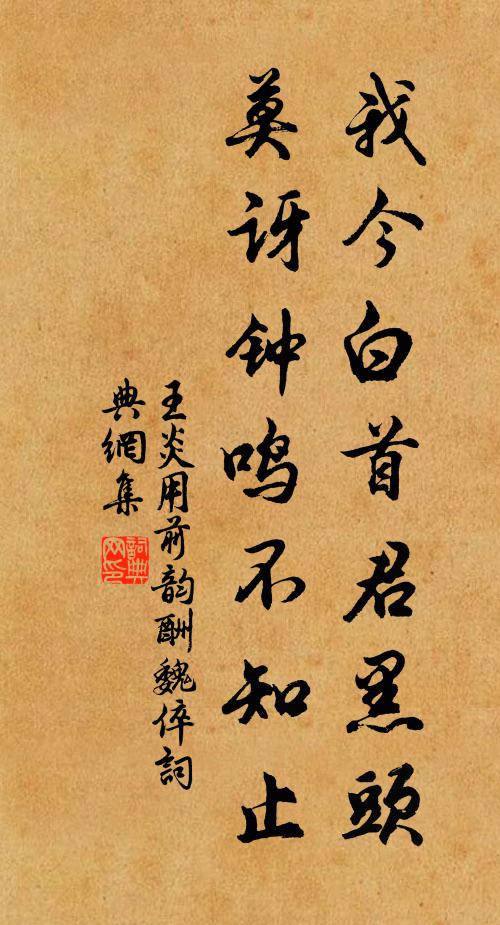 我今白首君黑頭
莫讶钟鸣不知止
王炎用前韵酬魏倅詞
典網集
詞典網印